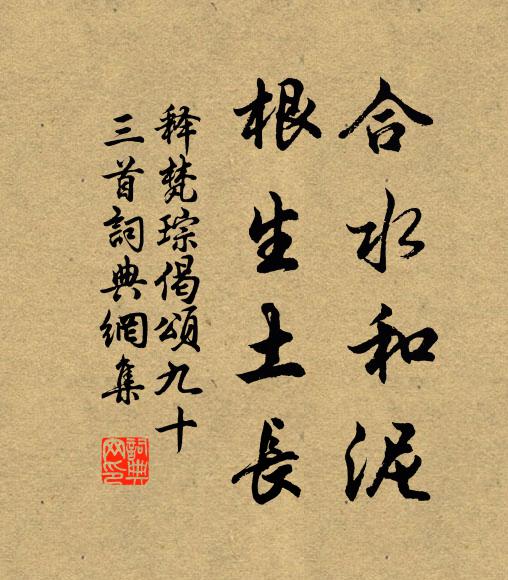 合水和泥
根生土長
释梵琮偈頌九十
三首詞典網集
詞典
网印